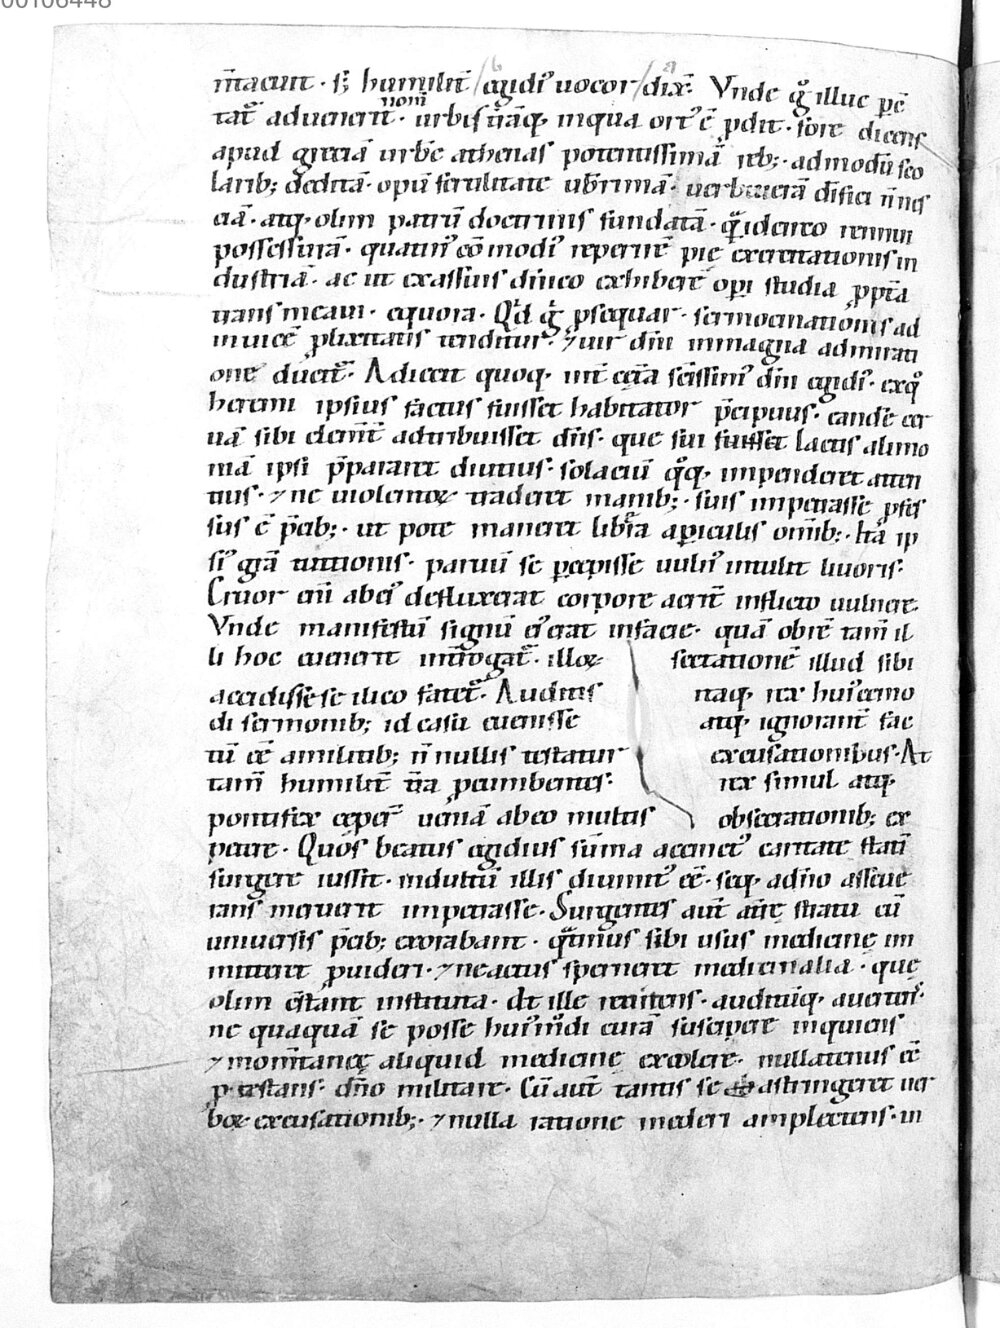 00106448
m̅tacunt · s; humilit̅ / egidi᷒ uocor / dix̅. Vnde g̊ illuc p̅e
tat᷒ aduenerit · nom̅ urbis n̅aq; inqua ort᷒ ē pdit · fore dicens
apud greciā urbē athenas potentissimā reb; · admodū seo
larib; deditā · opū fertilitate ub̅rimā · uerbucerā
ciā · atq; olim patrū doctrinis fundatā · idcirco
possessurā · quatin᷒ cōmodi᷒ reperire̅ pię exercitationis in
dustriā · ac ut exassius diuico exhibere᷒ opi studia ꝓp̅ta
trans meaui · equora · Qd̅ g̊ ꝓsequar · sermocinationis ad
inuicē ꝓlixitatis tenditur · ⁊ uir dn̅i inmagna admirati
one ducit᷒ · Adiecit quoq; int̅ cet̅a sc̅issim᷒ dn̅i egidi᷒ · exq̊
heremi ipsius factus fuisset habitator p̅cipuus · eande̅ cer
uā sibi clem̅t̅ adtribuisset dn̅s · que sui fuisset lactis alimo
niā ipsi p̅pararet diutius · solaciū q̊q; impenderet atten
tius · ⁊ ne uiolentoꝝ traderet manib; · suis impetrasse pfes
sus ē p̅cib; · ut pote maneret lib̅a apiculis om̅ib; · Hā ip
si᷒ grā tuitionis · paruū se pcepisse uuln᷒ intulit liuoris ·
Cruor eni̅ abei᷒ defluxerat corpore acrit̅ inflicto uulnere ·
Vnde manifestū signū ei᷒ erat infacie · quā obrē tam̅ il
li hoc euenerit int̅rogat᷒ · illoꝝ sectatione̅ illud sibi
accidisse se ilico fatet᷒ · Auditis itaq; rex hui᷒cemo
di sermonib; id casu euenisse atq; ignorant̅ fac
tū eē amilitib; n̅ nullis testatur excusationibus · At
tam̅ humilit̅ t̅ra pcumbentes · rex simul atq;
pontifex cęper̅ ueniā abeo multis obsecrationib; ex
petere · Quos beatus egidius sum̅a accinct᷒ caritate stati̅
surgere iussit · indultū illis diuinit᷒ eē · seq; adn̅o asseue
rans meruerit impetrasse · Surgentes aut̅ ante̅ stratu cū
uniuersis p̅cib; exorabant · q̅tinus sibi usus medicinę im
mitteret ꝓuideri · ⁊ ne actus sperneret medicinalia · quę
olim cōstant instituta · At ille renitens · auditū̅q; auertit᷒ ·
ne quaquā se posse hui᷒m̊di curā suscipere inquiens
⁊ mom̅taneę aliquid medicinę excolere · nullatenus eē
p̅testans · dn̅o militare · Cū aut̅ tantis se astringeret uer
boꝝ excusationib; · ⁊ nulla ratione mederi amplectens · in